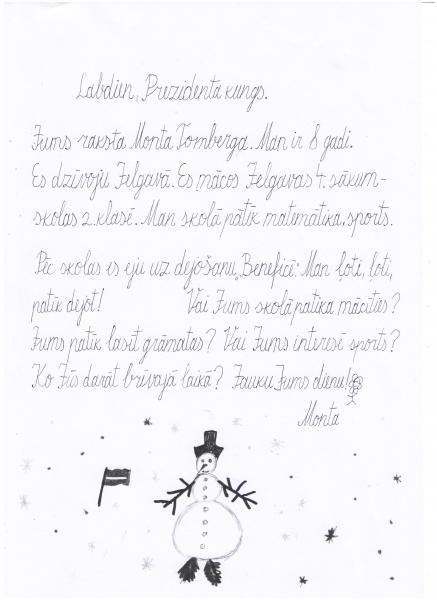 Labdien, Prezidenta kungs.
Jums raksta Monta Tomberga. Man ir 8 gadi.
Es dzīvoju Jelgavā. Es mācos Jelgavas 4. sākum-
skolas 2. klasē. Man skolā patīk matemātika, sports.
Pēc skolas es eju uz dejošanu „Benefici". Man ļoti, ļoti,
patīk dejot! Vai Jums skolā patika mācīties?
Jums patīk lasīt grāmatas? Vai Jums interesē sports?
Ko Jūs darāt brīvajā laikā? Jauku Jums dienu!
Monta